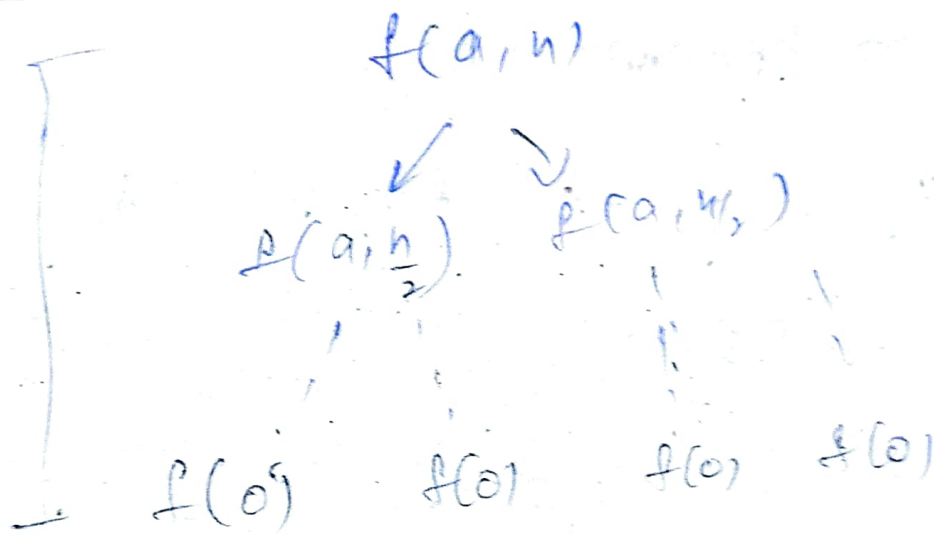 f(a, n)
f(a, n/2) f(a, n/2)
f(0) f(0) f(0) f(0)